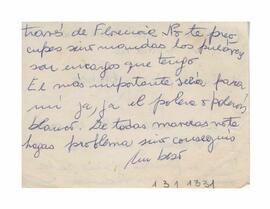 través de Florencia No te preo
cupes sino mandas los pulóver
son encargos que tengo
El más importante sería para
mí ja, ja el polera o polerón
blanco. De todas maneras no te
hagas problema sino conseguis
Un beso
131331